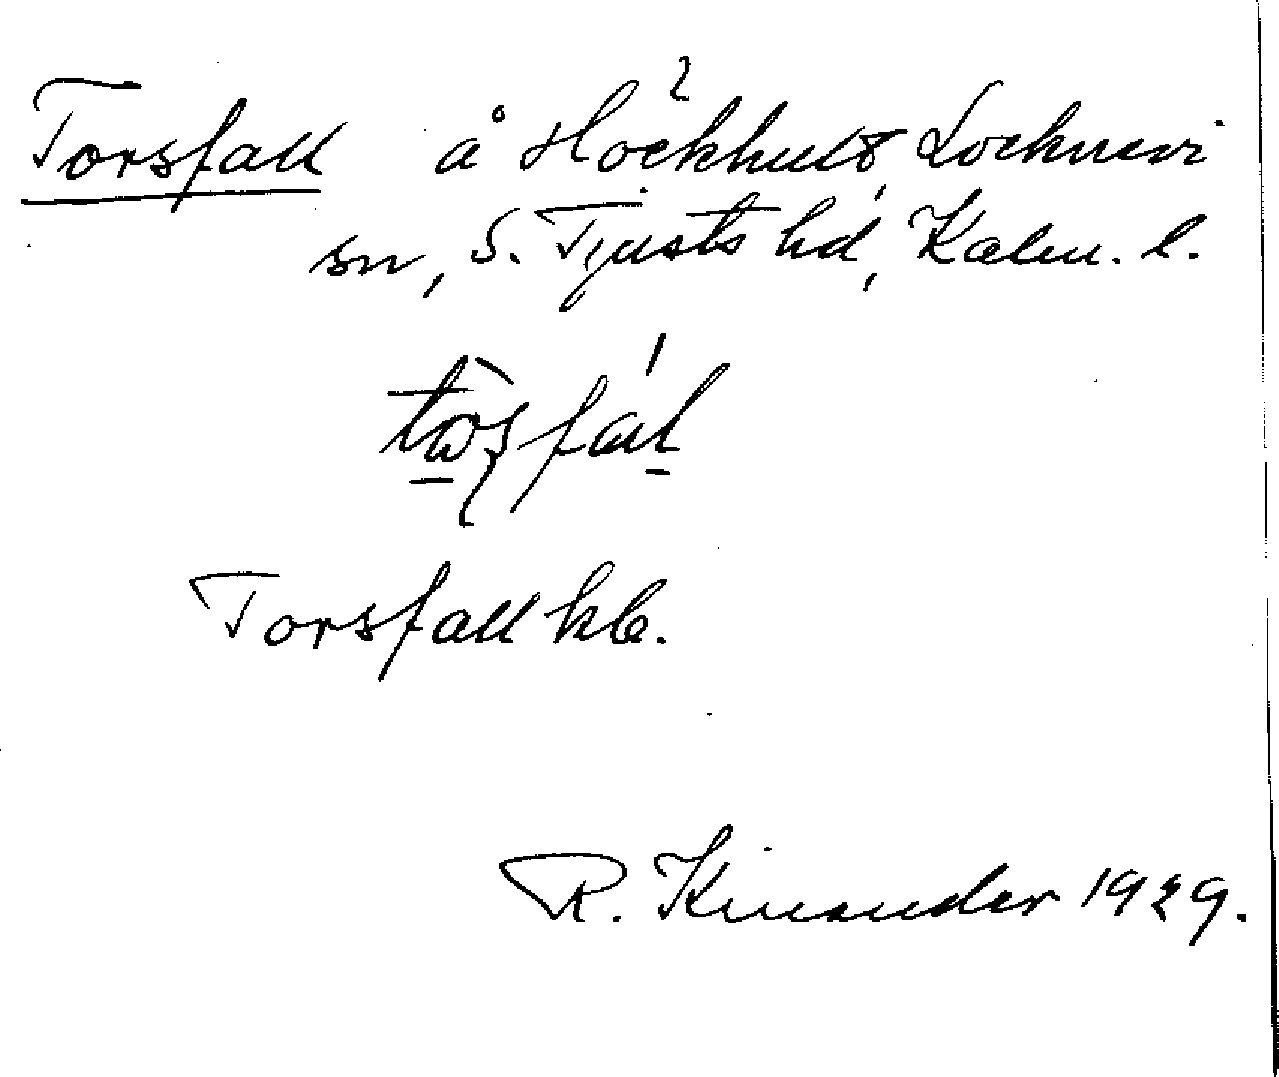 Torsfall å Hökhult Locknevi
sn, S. Tjusts hd, Kalm. l.
Torsfall kb.
R. Kinander 1929.